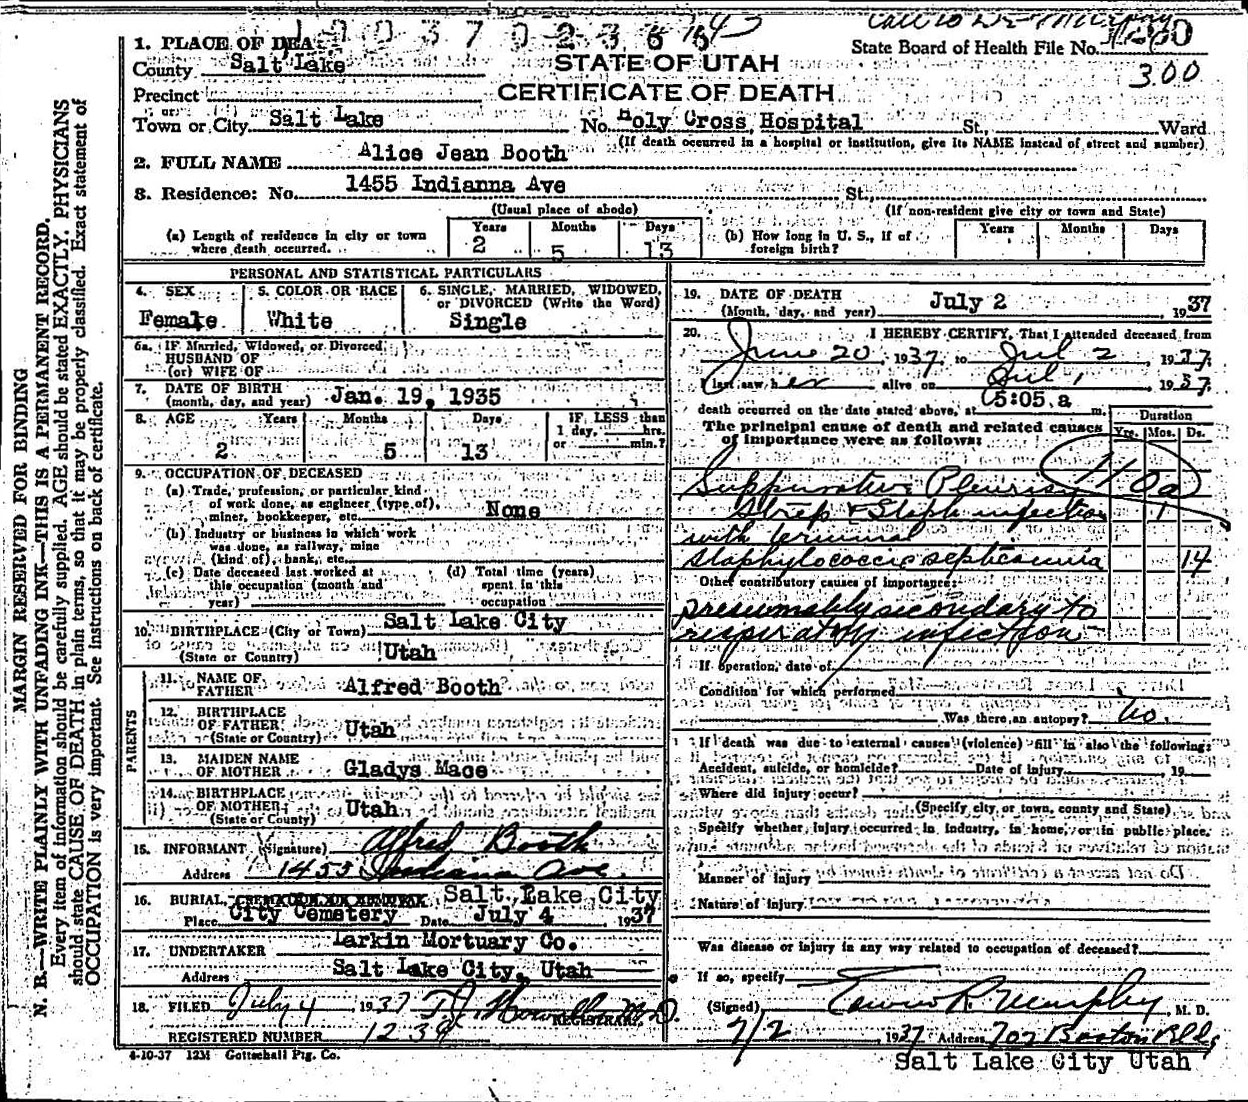 1. PLACE OF DEA
1937023667
State Board of Health File No.
County Salt Lake
STATE OF UTAH
300
Precinct
CERTIFICATE OF DEATH
or
Town or City Salt Lake No. Holy Cross Hospital St., Ward
(If death occurred in a hospital or institution, give its NAME instead of street and number)
2. FULL NAME Alice Jean Booth
3. Residence: No. 1455 Indianna Ave St.,
(Usual place of abode) (If non-resident give city or town and State)
(a) Length of residence in city or town where death occurred. Years 2 Months 5 Days 13
(b) How long in U. S., if of foreign birth? Years Months Days
PERSONAL AND STATISTICAL PARTICULARS
4. SEX Female
5. COLOR OR RACE White
6. SINGLE, MARRIED, WIDOWED, or DIVORCED (Write the Word) Single
6a. IF Married, Widowed, or Divorced
HUSBAND OF
(or) WIFE OF
7. DATE OF BIRTH
(month, day, and year) Jan. 19, 1935
8. AGE Years 2 Months 5 Days 13
IF LESS than 1 day, hrs. or min.?
9. OCCUPATION OF DECEASED
(a) Trade, profession, or particular kind of work done, as engineer (type of), miner, bookkeeper, etc. None
(b) Industry or business in which work was done, as railway, mine (kind of), bank, etc.
(c) Date deceased last worked at this occupation (month and year)
(d) Total time (years) spent in this occupation
10. BIRTHPLACE (City or Town) Salt Lake City
(State or Country) Utah
PARENTS
11. NAME OF FATHER Alfred Booth
12. BIRTHPLACE OF FATHER
(State or Country) Utah
13. MAIDEN NAME OF MOTHER Gladys Mace
14. BIRTHPLACE OF MOTHER
(State or Country) Utah
15. INFORMANT (Signature) Alfred Booth
Address 1455 Indiana Ave.
16. BURIAL, CREMATION OR REMOVAL Salt Lake City
Place City Cemetery Date July 4 1937
17. UNDERTAKER Larkin Mortuary Co.
Address Salt Lake City, Utah
18. FILED July 4 1937 T. J. Howells M.D.
REGISTRAR.
REGISTERED NUMBER 1238
4-10-37 12M Gottschall Ptg. Co.
19. DATE OF DEATH
(Month, day, and year) July 2 1937
20. I HEREBY CERTIFY, That I attended deceased from
June 20, 1937, to Jul 2 1937.
I last saw her alive on Jul 1 1937.
death occurred on the date stated above, at 5:05 a m.
The principal cause of death and related causes of importance were as follows:
Duration
Yrs. Mos. Ds.
110a
Suppurative Pleurisy
Strep & Staph infection 1
with terminal
staphylococcic septicaemia 14
Other contributory causes of importance:
presumably secondary to
respiratory infection
If operation, date of
Condition for which performed
Was there an autopsy? no.
If death was due to external causes (violence) fill in also the following:
Accident, suicide, or homicide? Date of injury 19
Where did injury occur?
(Specify city or town, county and State)
Specify whether injury occurred in industry, in home, or in public place.
Manner of injury
Nature of injury
Was disease or injury in any way related to occupation of deceased?
If so, specify
(Signed) Edwin R. Murphy, M. D.
7/2, 1937 Address 702 Boston Bldg
Salt Lake City Utah
MARGIN RESERVED FOR BINDING
N. B.—WRITE PLAINLY WITH UNFADING INK—THIS IS A PERMANENT RECORD.
Every item of information should be carefully supplied. AGE should be stated EXACTLY. PHYSICIANS
should state CAUSE OF DEATH in plain terms, so that it may be properly classified. Exact statement of
OCCUPATION is very important. See instructions on back of certificate.